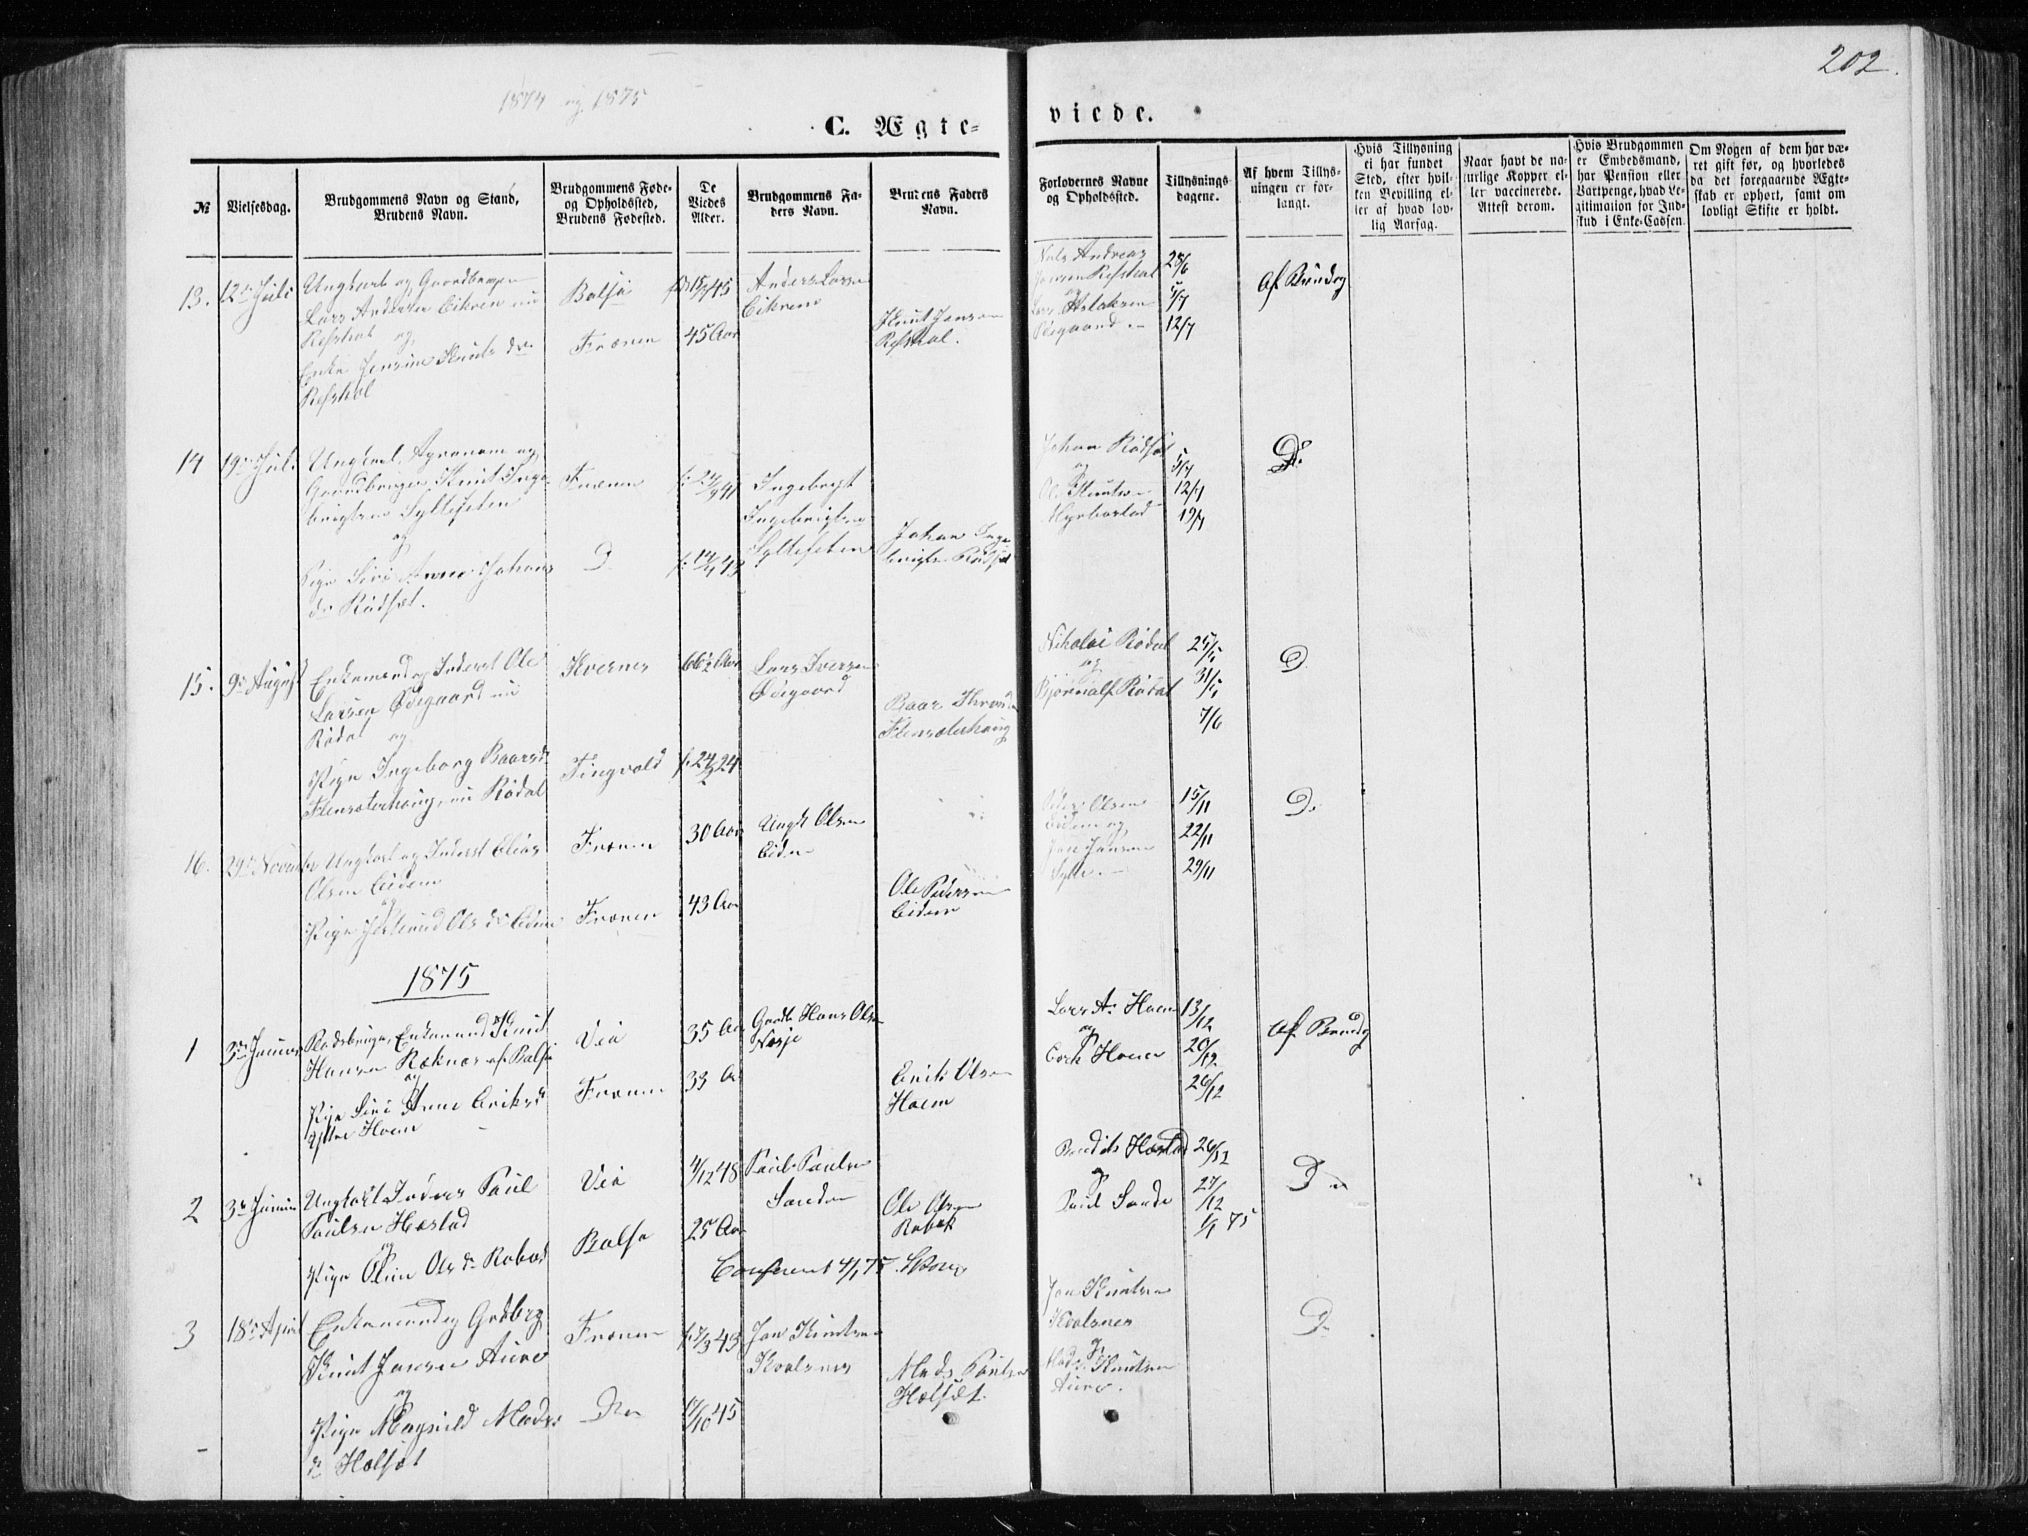 202.
1874 og 1875
C. Ægte-
viede.
№
Vielsesdag.
Brudgommens Navn og Stand,
Brudens Navn.
Brudgommens Føde-
og Opholdssted,
Brudens Fødested.
De
Viedes
Alder.
Brudgommens Fa-
ders Navn.
Brudens Faders
Navn.
Forlovernes Navne
og Opholdssted.
Tillysnings-
dagene.
Af hvem Tillys-
ningen er for-
langt.
Hvis Tillysning
ei har fundet
Sted, efter hvil-
ken Bevilling el-
ler af hvad lov-
lig Aarsag.
Naar havt de na-
turlige Kopper el-
ler vaccinerede.
Attest derom.
Hvis Brudgommen
er Embedsmand,
har Pension eller
Vartpenge, hvad Le-
gitimation for Ind-
skud i Enke-Cassen.
Om Nogen af dem har væ-
ret gift før, og hvorledes
da det foregaaende Ægte-
skab er ophørt, samt om
lovligt Skifte er holdt.
13. 12te Juli
Ungkarl og Gaardbruger
Lars Andersen Eikrem nu
Refshal
og
Enke Jensine Knuts dr
Refshal
Bolsø
Frænen
45 Aar
Anders Larsen
Eikrem
Knut Jensen
Refshal.
Niels Andreas
Jensen Refshal
og
Lars Aslaksen
Ødegaard
28/6
5/7
12/7
Af Brudg
14 19de Juli
Ungkarl, Agronom og
Gaardbruger Knut Inge-
brigtsen Syltesæten
og
Pige Siri Anne Johans
dr Rødsæt.
Frænen
D
f. 27/9 41
Ingebrigt
Ingebrigtsen
Syltesæten
Johan Inge
brigts. Rødsæt
Johan Rødsæt
og
Ole Knutsen
Hyrbostad
5/7
12/7
19/7
Do
15. 9de August
Enkemand og Inderst Ole
Larsen Ødegaard nu
Rødal og
Pige Ingeborg Baarsdr
Flensæterhaug, nu Rødal
Kvernes
Tingvold
66½ Aar
f. 24/2 24
Lars Iversen
Ødegaard
Baar
Flensæterhaug
Nikolai Rødal
og
Bjørnulf Rødal
25/5
31/5
7/6
D
16. 29de November
Ungkarl og Inderst Elias
Olsen Eidem
og
Pige Ols dr Eidem
Frænen
Frænen
30 Aar
43 Aar
Olsen
Eidem
Ole Pedersen
Eidem
Peder Olsen
Eidem og
Jensen
Sylte.
15/11
22/11
29/11
D.
1875
1 3die Januar
Pladsbruger, Enkemand Knut
Hansen Ræknes af Bolsø
og
Pige Siri Anne Eriksdr
Ytre Hoem
Veø
Frænen
35 Aar
33 Aar
Gaardb Hans Olsen
Nesje
Erik Olsen
Hoem
Lars A. Hoem
og
Erik Hoem
13/12
20/12
26/12
Af Brudg
2 3die Januar
Ungkarl Inderst Paul
Paulsen Hostad
og
Pige Oline Ols dr Robæk
Veø
Bolsø
4/12 48
25 Aar
Paul Paulsen
Sanden
Ole Olsen
Robæk
Confirmert 4/1 75
Hostad
og
Paul Sande
26/12
27/12
1/1 75
D
3 18de April
Enkemand og Grdbrg
Knut Jonsen Aure
og
Pige Magnild Mads
dr Holsæt
Frænen
Do
f. 7/3 43
17/10 45
Jon Knutsen
Kvalsnes
Mads Paulsen
Holsæt.
Jon Knutsen
Kvalsnes
og
Mads Knutsen
Aure.
D